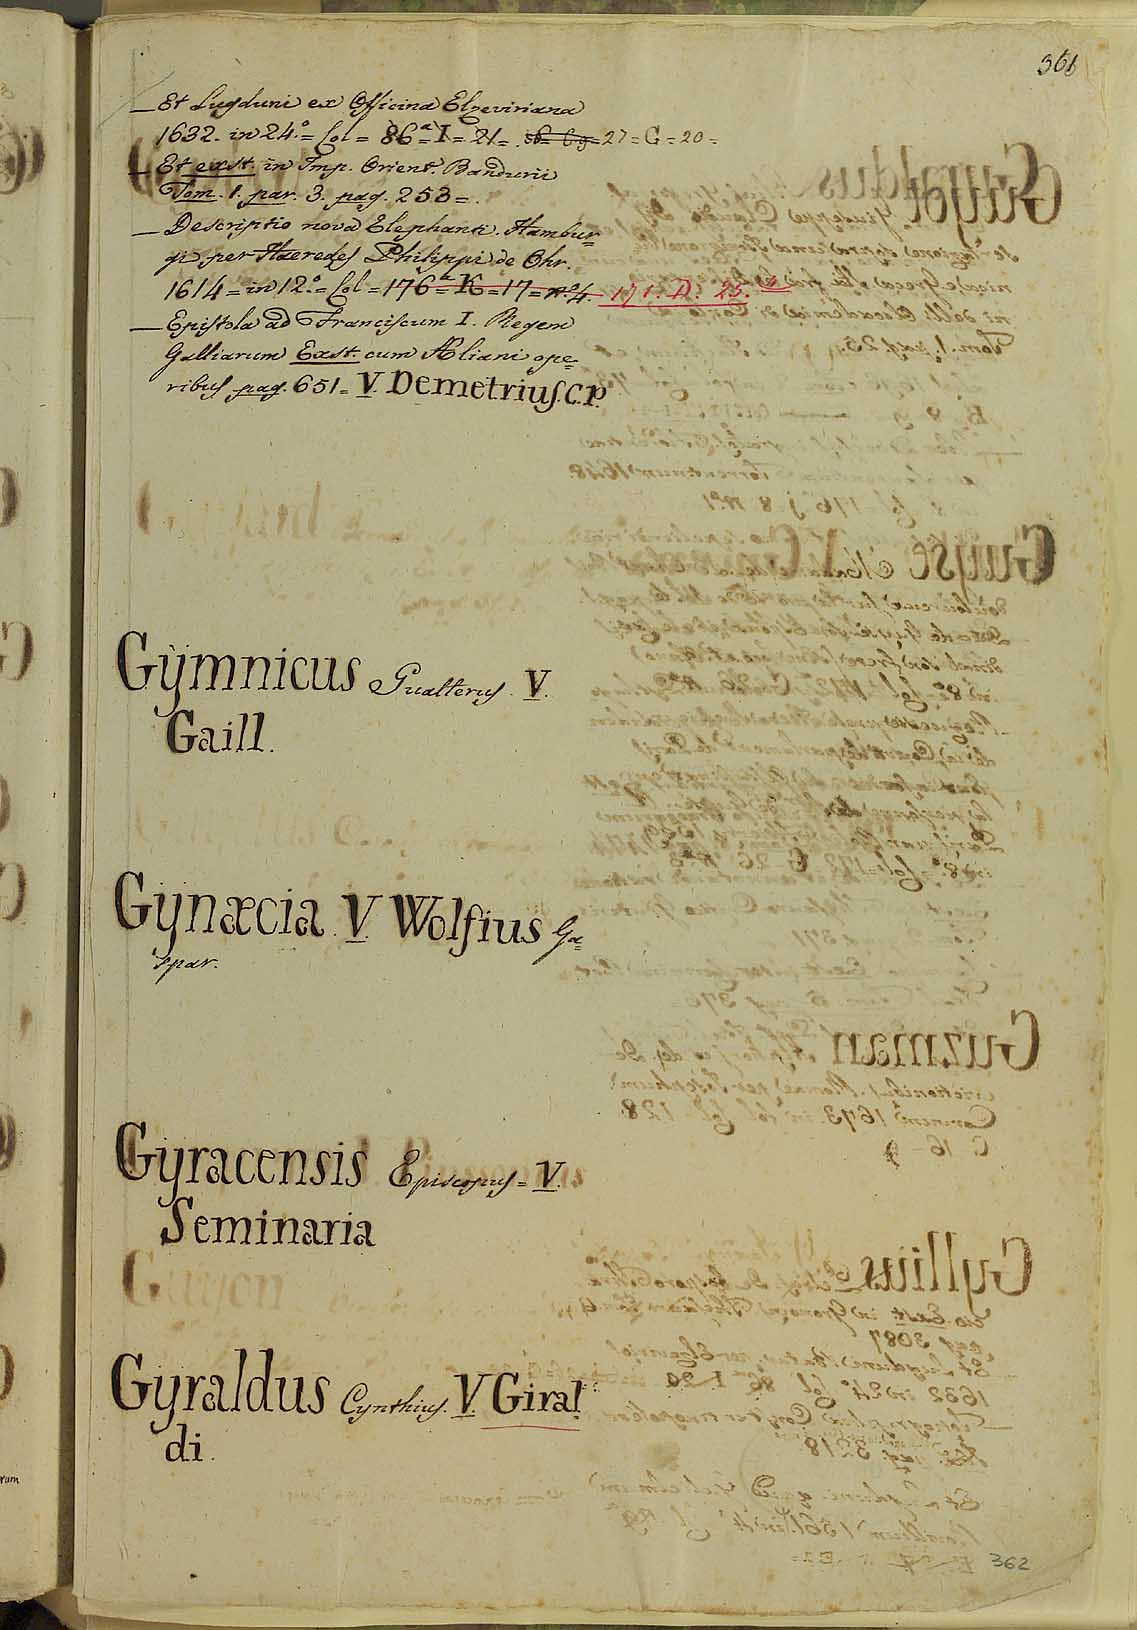 361
— Et Lugduni ex Officina Elzeviriana
1632. in 24.º = Col = 86ª = I = 21 = 27 = G = 20 =
— Et exst. in Imp. Orient. Bandurii
Tom. 1. par. 3. pag. 253 =.
— Descriptio nova Elephanti. Hambur=
gi per Haeredes Philippi de Ohr.
1614 = in 12.º = Col = 176ª = K = 17 = nº 4. 171. D. 25. =
— Epistola ad Franciscum I. Regem
Galliarum Exst. cum Æliani ope=
ribus pag. 651 = V. Demetrius. C. P.
Gÿmnicus Gualterus. V.
Gaill.
Gÿnæcia V Wolfius Ga=
spar.
Gÿracensis Episcopus = V.
Seminaria
Gyraldus Cynthius. V. Giral
di.
362